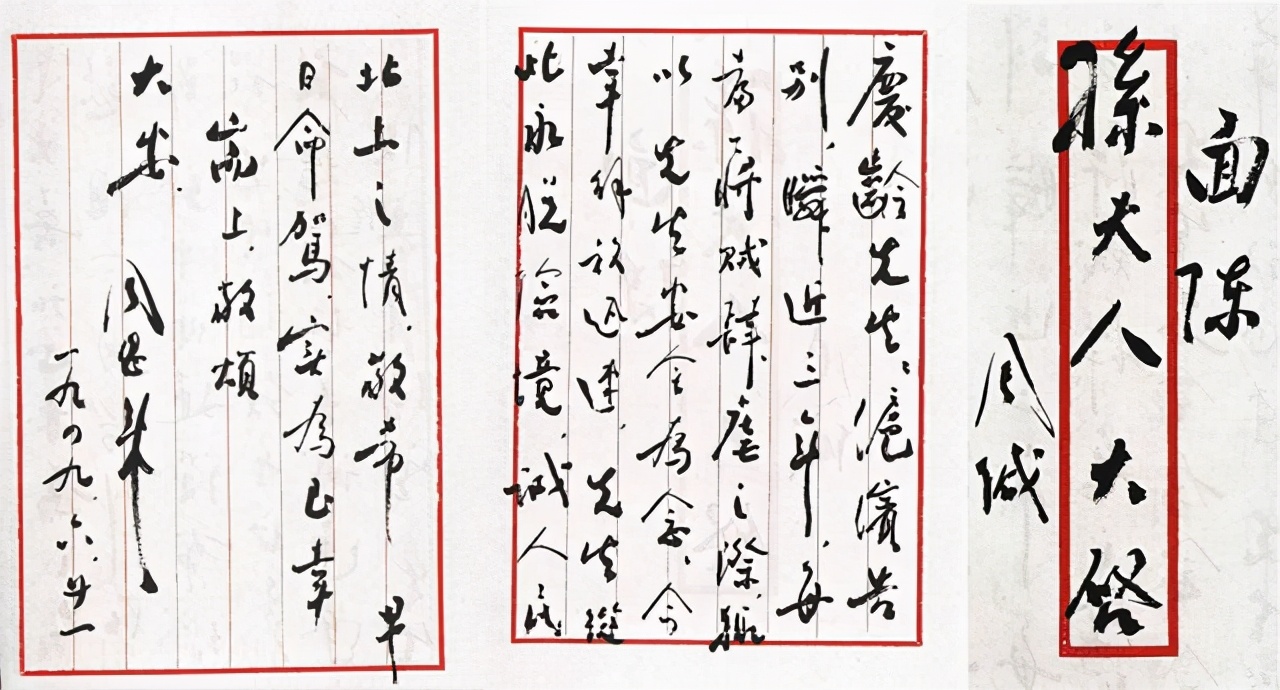 面陳
孫夫人大啓
周緘
慶齡先生：滬濱告
別，瞬近三年，每
當蔣賊肆虐之際，輒
以先生安全為念。今
幸解放迅速，先生從
此永脫險境，誠人民
北上之情，敬希早
日命駕，實為至幸
耑上，敬頌
大安。
周恩來
一九四九、六、廿一